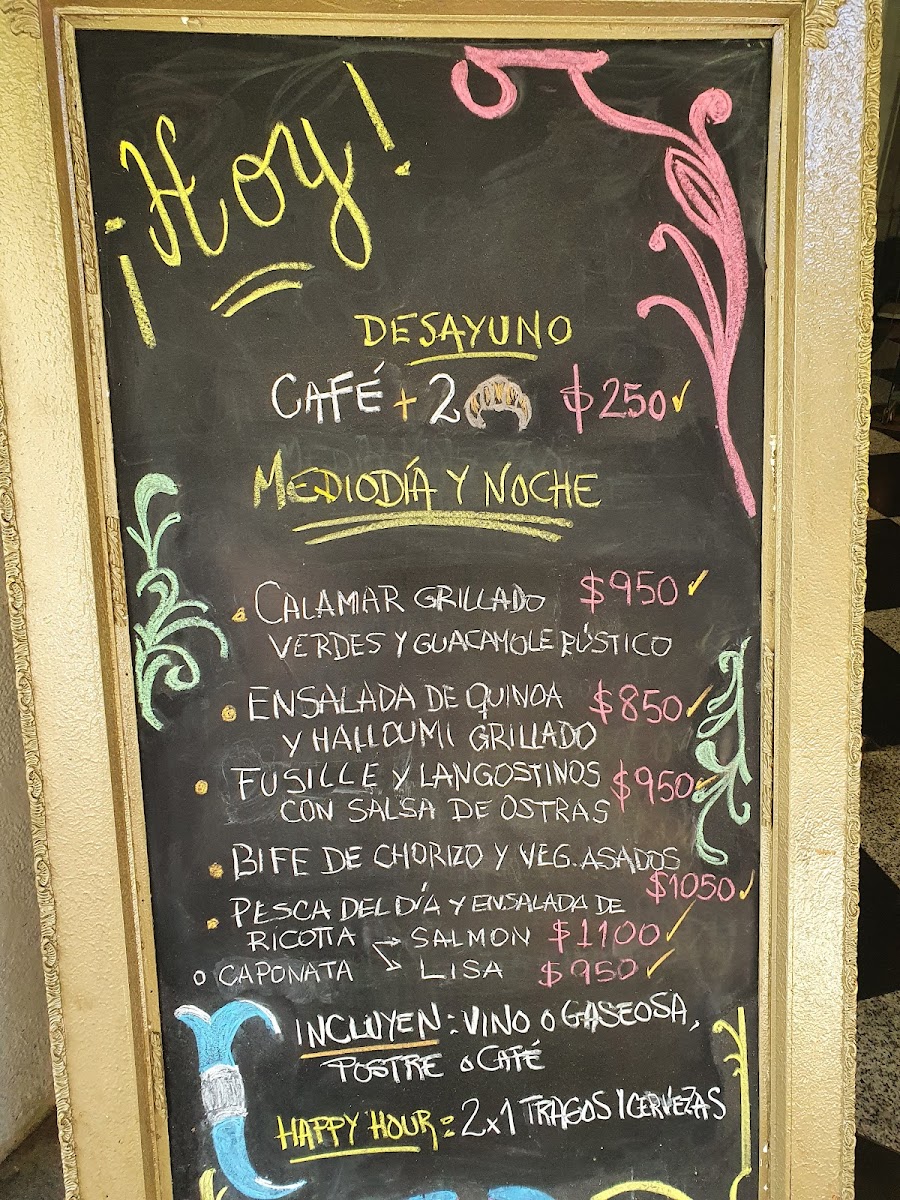 ¡Hoy!
DESAYUNO
CAFÉ + 2 $250
MEDIODÍA Y NOCHE
CALAMAR GRILLADO $950
VERDES Y GUACAMOLE RÚSTICO
ENSALADA DE QUINOA $850
Y HALLOUMI GRILLADO
FUSILLE Y LANGOSTINOS $950
CON SALSA DE OSTRAS
BIFE DE CHORIZO Y VEG. ASADOS
$1050
PESCA DEL DÍA Y ENSALADA DE
RICOTTA SALMON $1100
O CAPONATA LISA $950
INCLUYEN: VINO O GASEOSA,
POSTRE O CAFÉ
HAPPY HOUR: 2x1 TRAGOS Y CERVEZAS